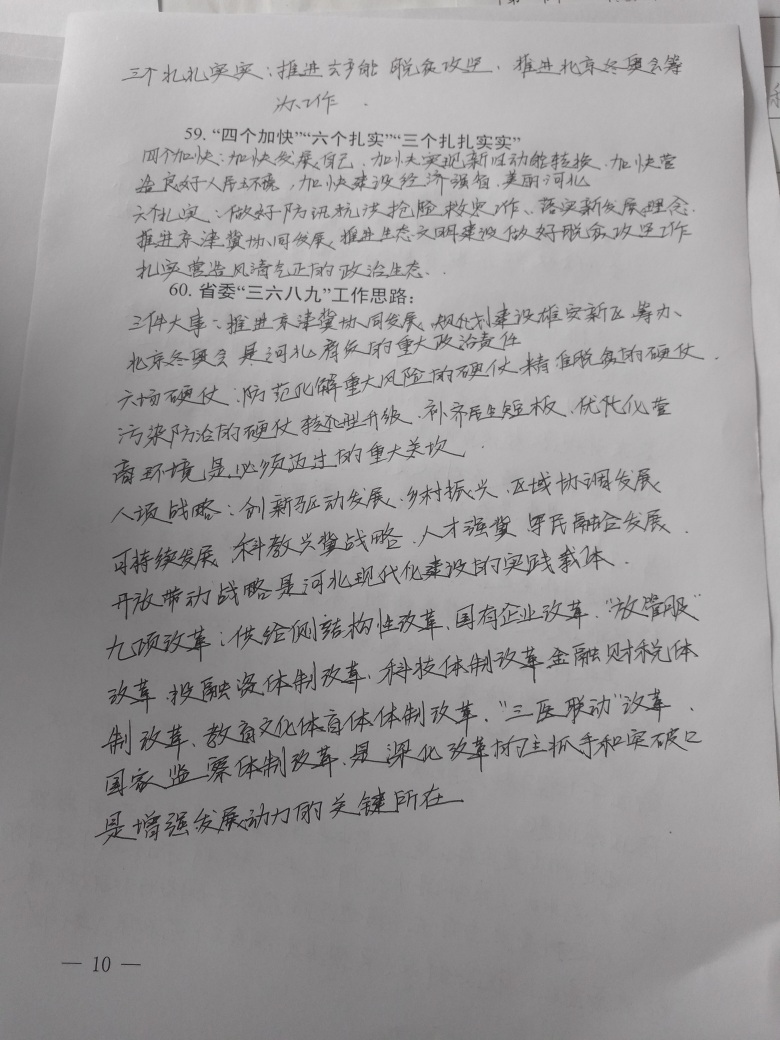 三个扎扎实实：推进去产能 脱贫攻坚、推进北京冬奥会筹
办工作.
59. “四个加快”“六个扎实”“三个扎扎实实”
四个加快：加快发展自己、加快实现新旧动能转换、加快营
造良好人居环境，加快建设经济强省、美丽河北
六个扎实：做好防汛抗洪抢险救灾工作、落实新发展理念.
推进京津冀协同发展、推进生态文明建设 做好脱贫攻坚工作
扎实营造风清气正的政治生态.
60. 省委“三六八九”工作思路：
三件大事：推进京津冀协同发展、规化划建设雄安新区、筹办、
北京冬奥会 是河北肩负的重大政治责任
六场硬仗：防范化解重大风险的硬仗 精准脱贫的硬仗.
污染防治的硬仗 转型升级、补齐民生短板、优化化营
商环境是必须迈过的重大关坎.
八项战略：创新驱动发展、乡村振兴、区域协调发展
可持续发展、科教兴冀战略、人才强冀 军民融合发展.
开放带动战略是河北现代化建设的实践载体.
九项改革：供给侧结构性改革、国有企业改革、“放管服”
改革、投融资体制改革、科技体制改革 金融财税体
制改革、教育文化体育体体制改革、“三医联动”改革.
国家监察体制改革、是深化改革的主抓手和突破口
是增强发展动力的关键所在
— 10 —